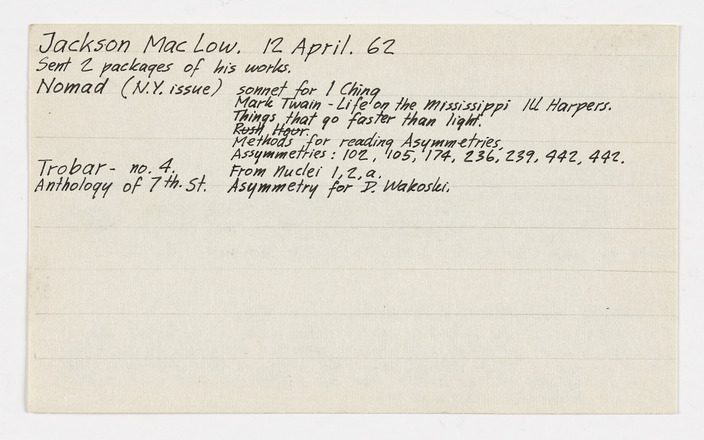 Jackson Mac Low. 12 April. 62
Sent 2 packages of his works.
Nomad (N.Y. issue) sonnet for I Ching
Mark Twain - Life on the Mississippi Ill Harpers.
Things that go faster than light.
Rush Hour.
Methods for reading Asymmetries,
Assymetries: 102, 105, 174, 236, 239, 442, 442.
Trobar - no. 4. From Nuclei 1, 2, a.
Anthology of 7th. St. Asymmetry for D. Wakoski.